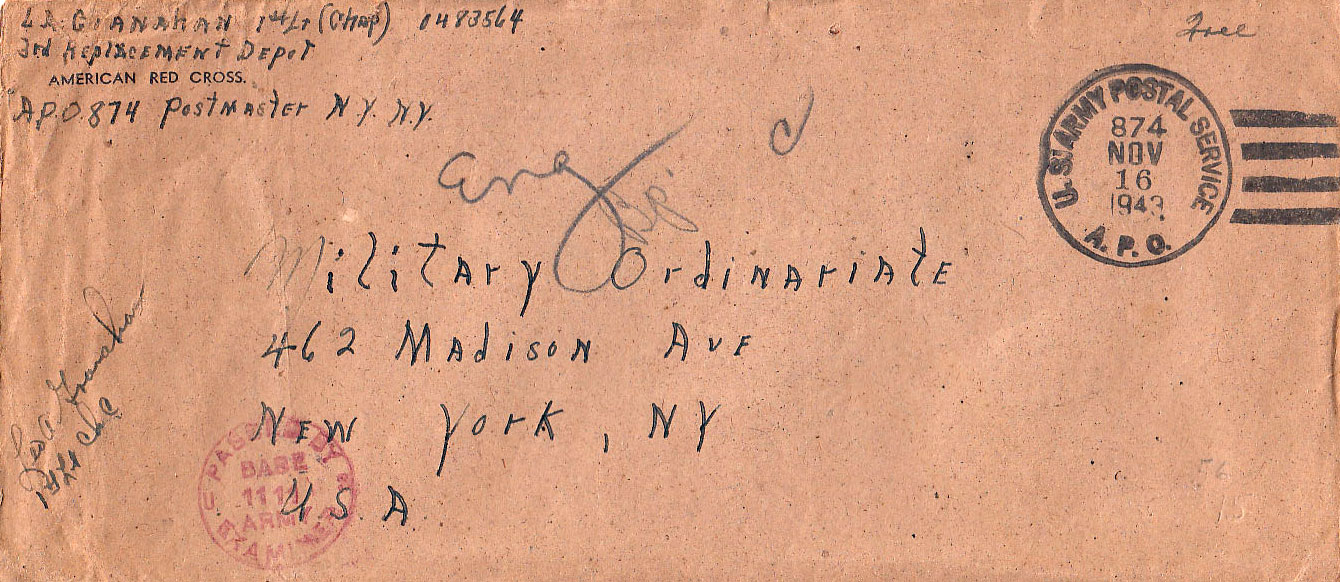 L A Granahan 1st Lt (Chap) 0483564
3rd Replacement Depot
AMERICAN RED CROSS.
A.P.O. 874 Postmaster N.Y. N.Y.
Free
U. S. ARMY POSTAL SERVICE
874
NOV
16
1943
A. P. O.
Bp.
Military Ordinariate
462 Madison Ave
New York, NY
U.S.A
Leo A Granahan
1st Lt ChC
PASSED BY
BASE
1111
ARMY
EXAMINER
56
15